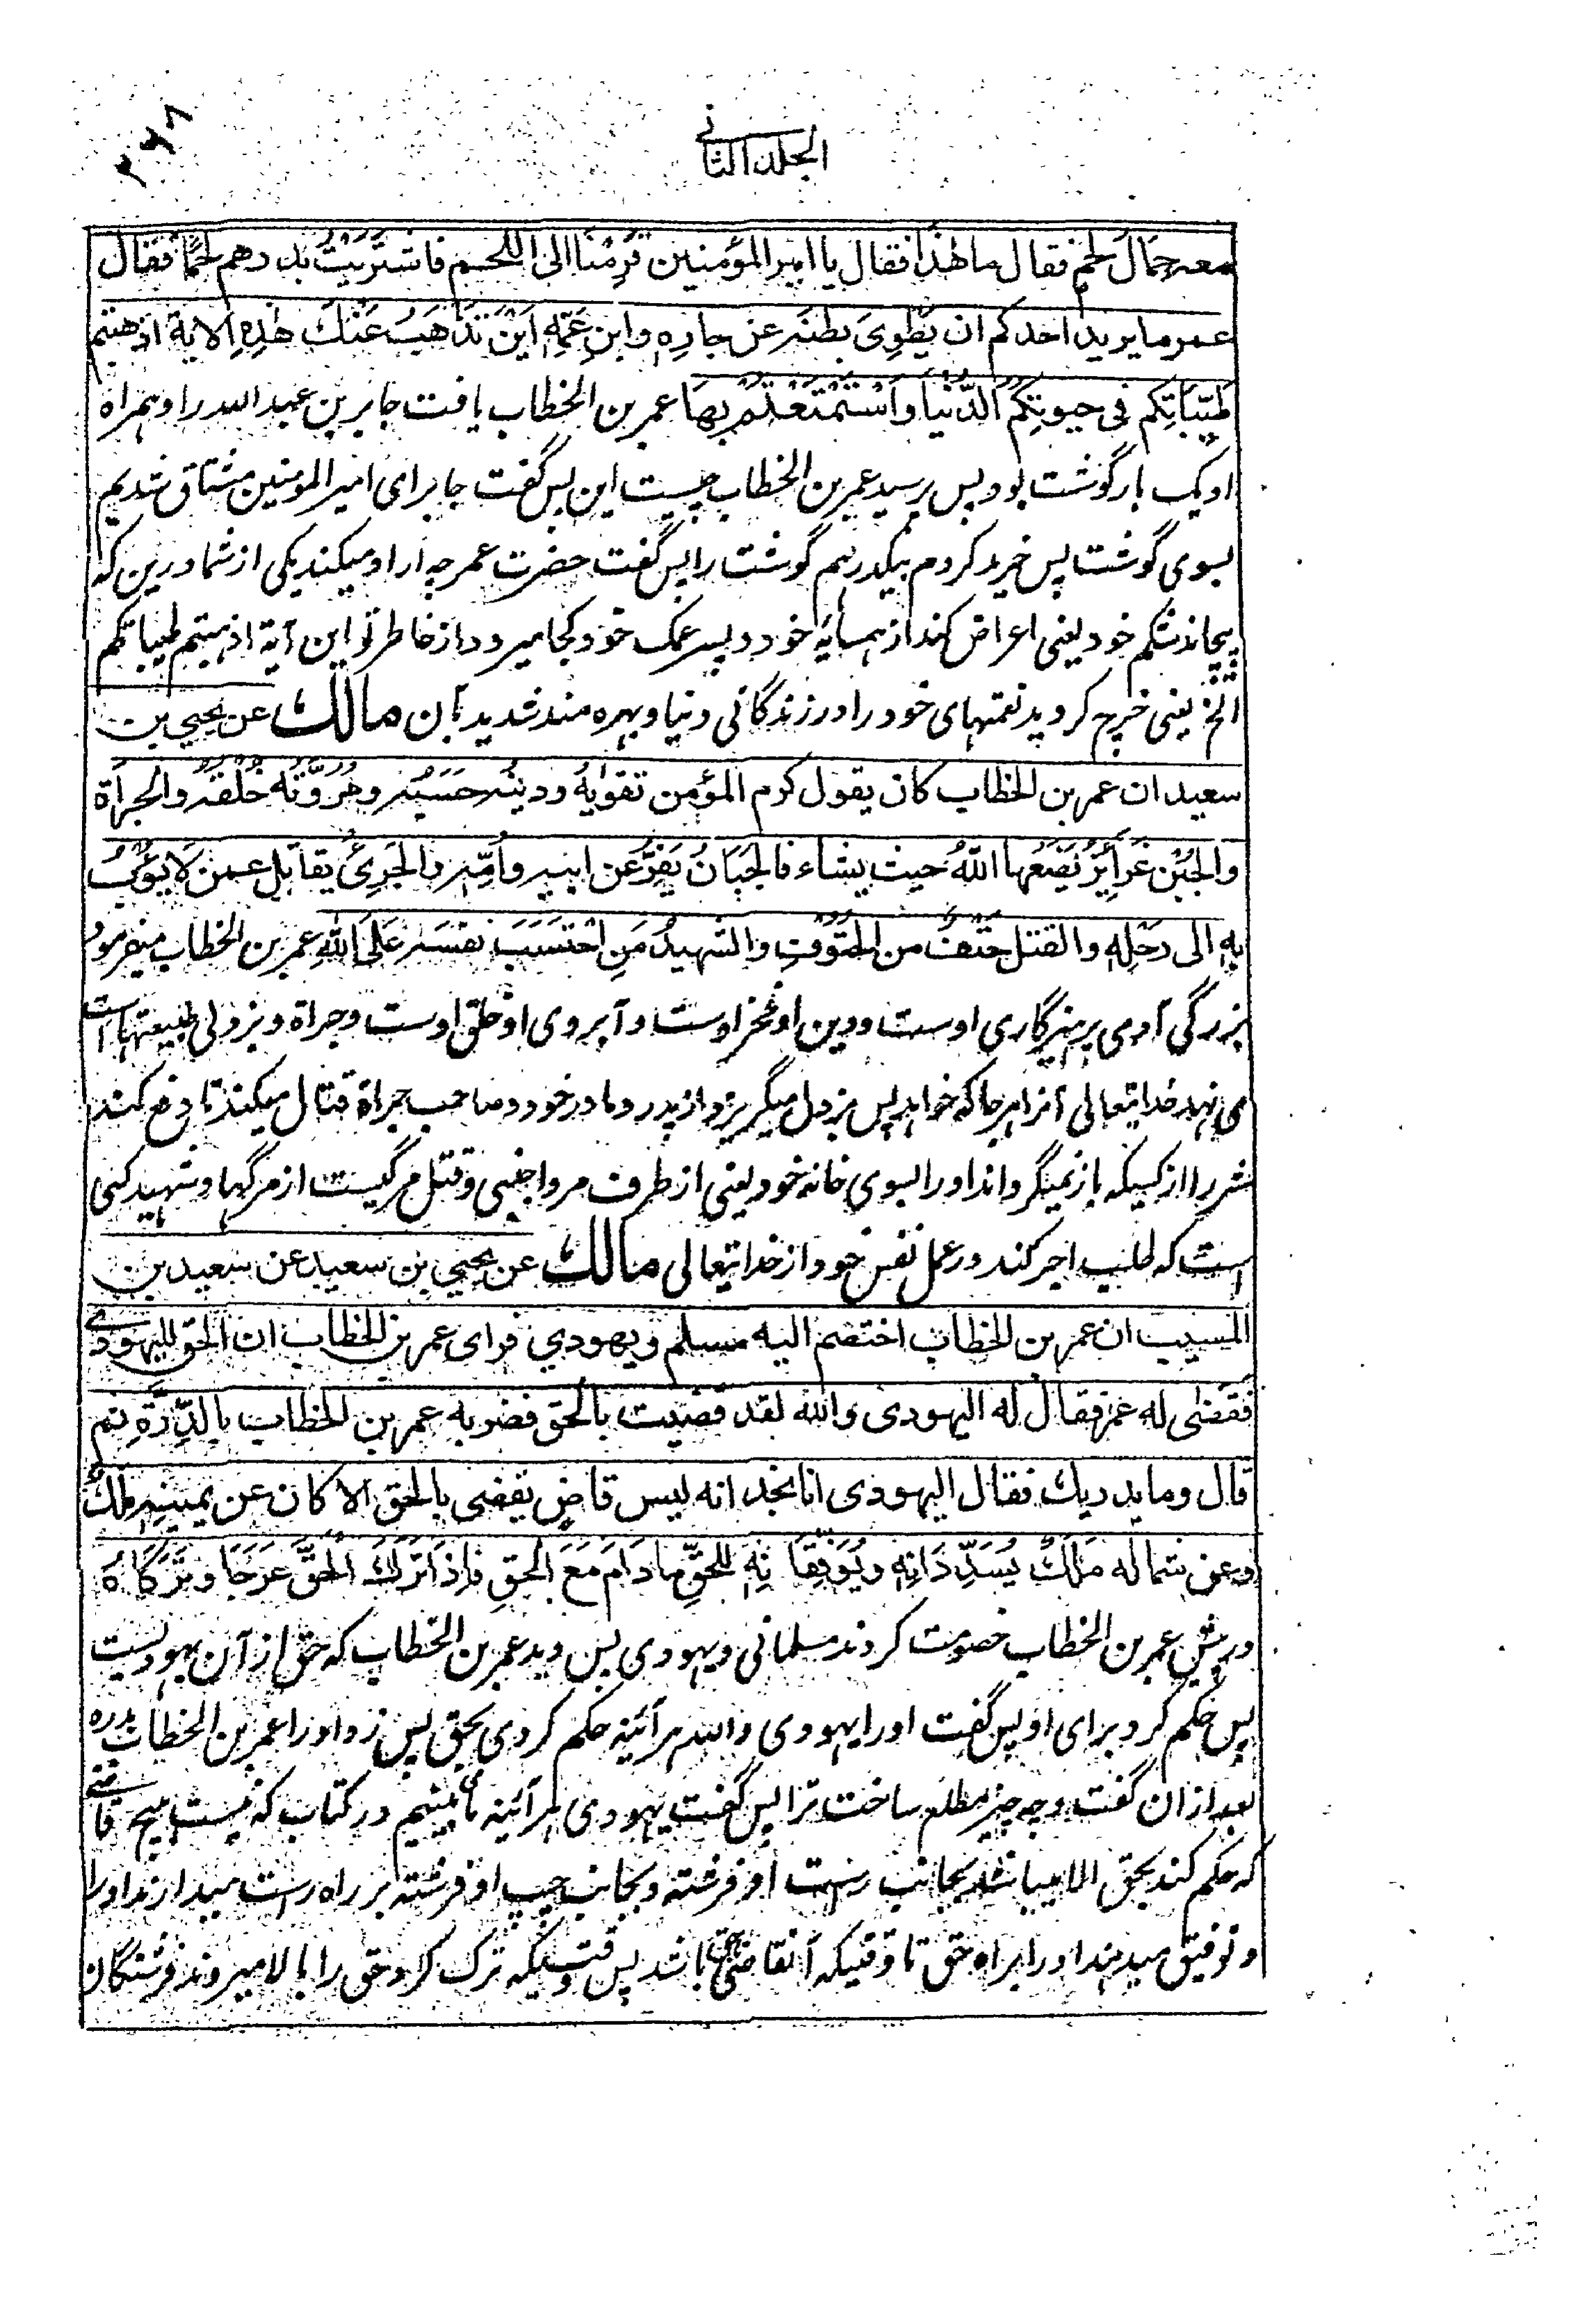 الجلد الثاني
٣٦٨
معه حِمَالُ لحمٍ فقال ما هٰذا فقال يا امير المؤمنين قَرِمْنَا الى اللحم فاشتريتُ بدرهم لحمًا فقال
عمر ما يريد احدكم ان يَطْوِىَ بطنَه عن جارِهِ وابنِ عَمِّهِ اَيْنَ تَذْهَبُ عَنْكَ هٰذِهِ الاٰية اذهبتم
طَيِّبَاتِكم فى حيوتِكُمُ الدُّنْيَا وَاسْتَمْتَعْتُمْ بِهَا عمر بن الخطاب يافت جابر بن عبد الله را و همراه
او يک بار گوشت بود پس پرسيد عمر بن الخطاب چيست اين پس گفت جابر اى امير المومنين مشتاق شديم
بسوى گوشت پس خريد کردم بيکدرهم گوشت را پس گفت حضرت عمر چه اراده ميکند يکى از شما درين که
بپيچاند شکم خود يعنى اعراض کند از همسايهٔ خود و پسر عمک خود کجا ميرود از خاطر تو اين آية اذهبتم طيباتکم
الخ يعنى خرچ کرديد نعمتهاى خود را در زندگانى دنيا و بهره مند شديد بان مالك عن يحيي بن
سعيد ان عمر بن الخطاب كان يقول كرم المؤمن تقواهُ ودينُه حَسَبُه ومُرُوَّتُه خُلُقُهُ والجرأة
والجُبْنُ غَرائِزُ يَضَعُها اللّٰهُ حيث يشاء فالجَبَانُ يَفِرُّ عن ابيه وأمِّه والجَرِئُ يقاتل عمن لا يَؤُبُ
بِهِ الى رَحْلِهِ والقتل حَتْفٌ من الحُتُوْفِ والشهيدُ مَنِ احْتَسَبَ نفسَه عَلَى اللّٰهِ عمر بن الخطاب ميفرمود
بزرگى آدمى پرهيزگارى اوست ودين او فخر اوست و آبروى او خلق اوست وجراة و بزدلى طبيعتها است
مى نهد خدايتعالى آنرا هر جا که خواهد پس بزدل ميگريزد از پدر و مادر خود و صاحب جراة قتال ميکند تا دفع کند
شر را از کسيکه باز نميگرداند او را بسوى خانه خود يعنى از طرف مرد اجنبى و قتل مرگيست از مرگها و شهيد کسى
است که طلب اجر کند در عمل نفس خود از خدايتعالى مالك عن يحيي بن سعيد عن سعيد بن
المسيب ان عمر بن الخطاب اختصم اليه مسلم ويهودي فراى عمر بن الخطاب ان الحق لليهودى
فَقَضٰى له عمر فقال له اليهودى والله لقد قضيت بالحق فضربه عمر بن الخطاب بالدِّرَّةِ ثم
قال وما يدريك فقال اليهودى انا نجد انه ليس قاضٍ يقضى بالحق الا كان عن يمينِهِ ملكٌ
وعن شماله مَلَكٌ يُسَدِّدَانِهِ ويُوَفِّقَانِهِ للحقِّ مادَامَ مَعَ الحقِ فاِذَا تَرَكَ الحَقَّ عَرَجَا وتَرَكَاهُ
در پيش عمر بن الخطاب خصومت کردند مسلمانى و يهودى پس ديد عمر بن الخطاب که حق از آن يهوديست
پس حکم کرد براى او پس گفت او را يهودى والله هر آئينه حکم کردى بحق پس زد او را عمر بن الخطاب بدره
بعد از ان گفت و چه چيز مطلع ساخت ترا پس گفت يهودى هر آئينه ما مى بينيم در کتاب که نيست هيچ قاضى
که حکم کند بحق الا ميباشد بجانب راست او فرشته و بجانب چپ او فرشته بر راه راست ميدارند او را
و توفيق ميدهند او را براه حق تا وقتيکه آن قاضى بحق باشد پس وقتيکه ترک کرد حق را بالا ميروند فرشتگان